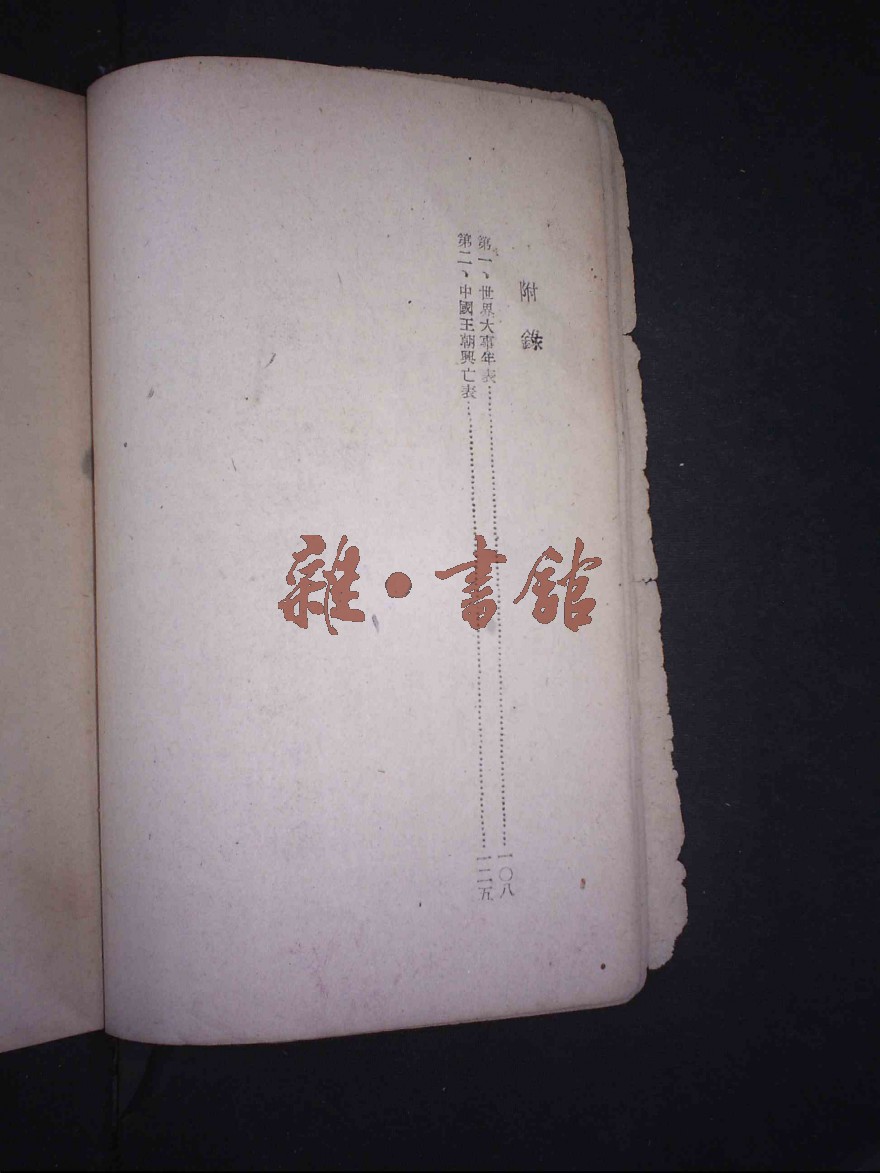 附錄
第一、世界大事年表……一〇八
第二、中國王朝興亡表……一二五
雜·書館